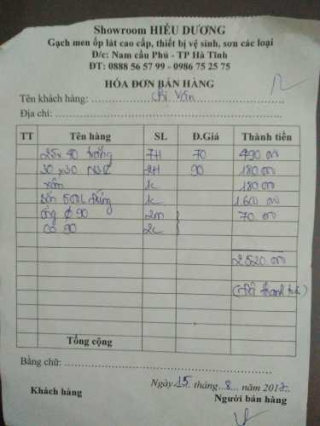 Showroom HIẾU DƯƠNG
Gạch men ốp lát cao cấp, thiết bị vệ sinh, sơn các loại
Đ/c: Nam cầu Phủ - TP Hà Tĩnh
ĐT: 0888 56 57 99 - 0986 75 25 75
HÓA ĐƠN BÁN HÀNG
Tên khách hàng: Vân
Địa chỉ:
TT Tên hàng SL Đ.Giá Thành tiền
25x40 trắng 7H 70 490
30x30 2H 90 180
xám 1c 180
bồn 500L đứng 1c 1.600
ống φ 90 2m 70
co 90 2c
2.520
(Đã thanh toán)
Tổng cộng
Bằng chữ:
Ngày 15 tháng 8 năm 201
Khách hàng Người bán hàng